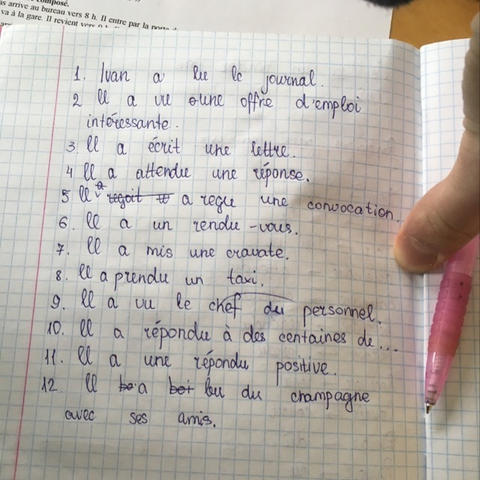 composé.
as arrive au bureau vers 8 h. Il entre par la porte
va à la gare. Il revient vers
1. Ivan a lu le journal.
2 Il a vu une offre d'emploi
intéressante.
3 Il a écrit une lettre.
4 Il a attendu une réponse.
5 Il a reçoit a regu une convocation.
6. Il a un rendu-vous.
7. Il a mis une cravate.
8. Il a prendu un taxi.
9. Il a vu le chef du personnel.
10. Il a répondu à des centaines de...
11. Il a une répondu positive.
12. Il bo a boi bu du champagne
avec ses amis.